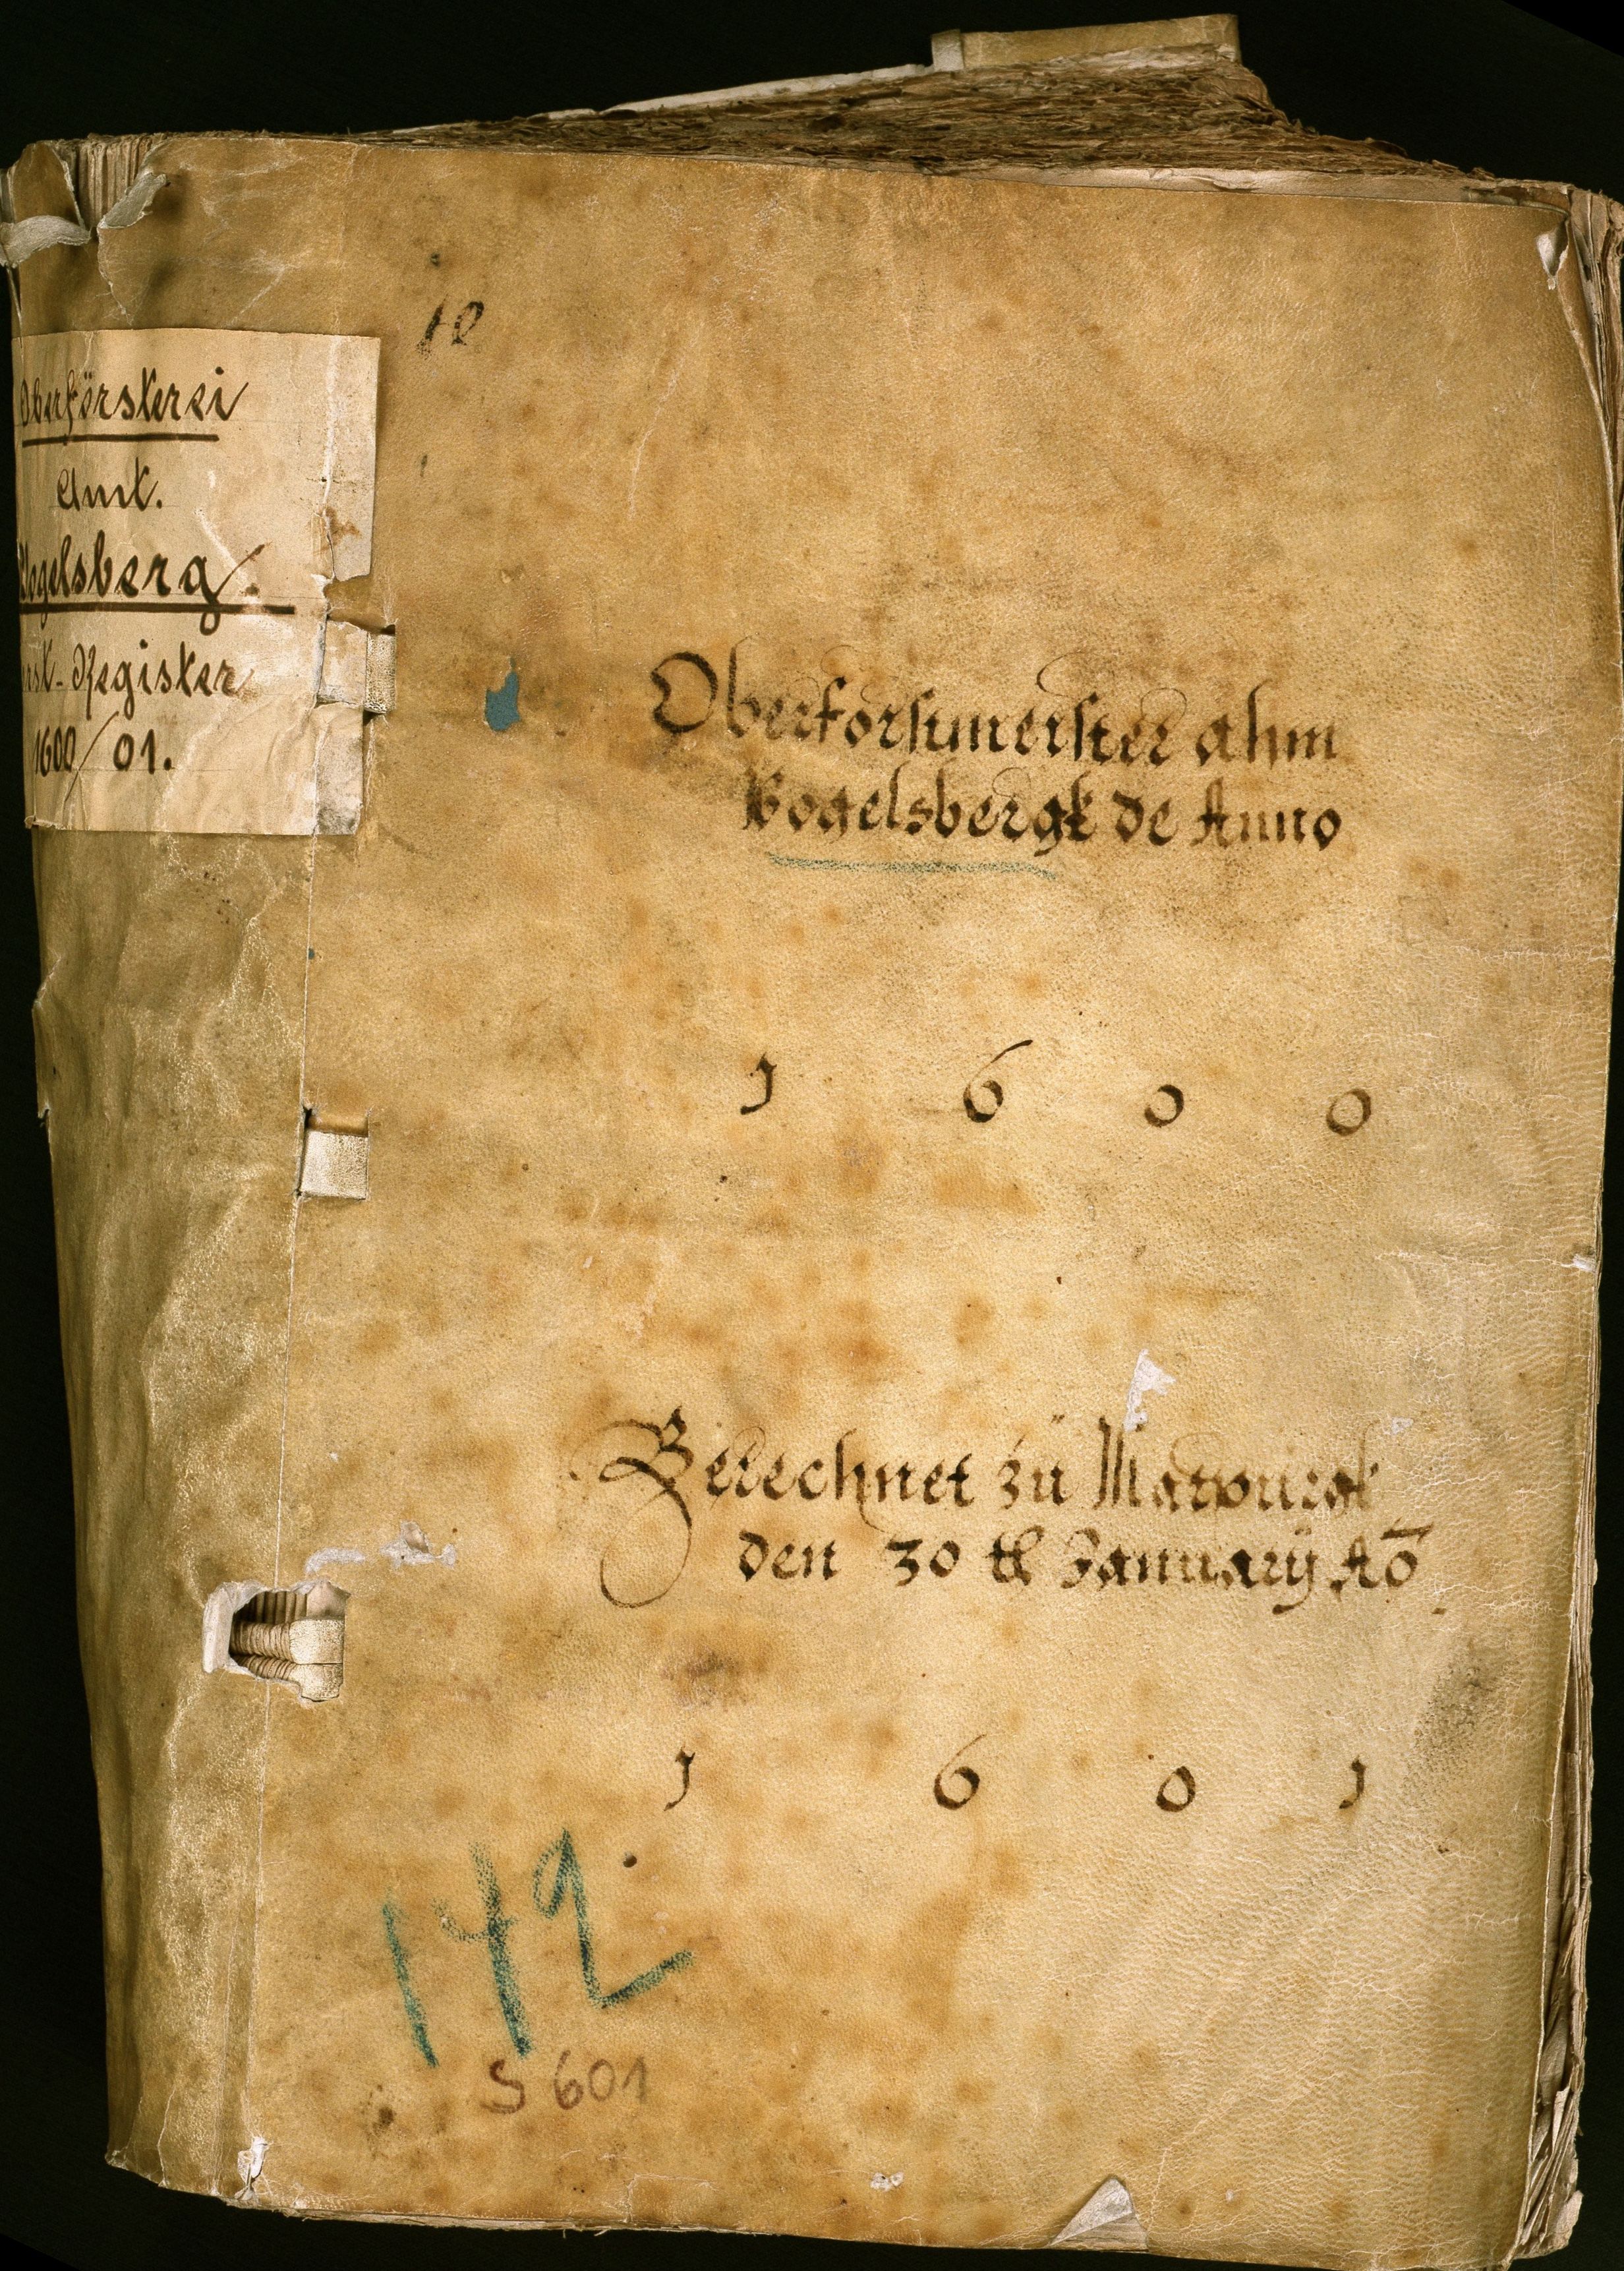 10
Oberförsterei
Amt.
Vogelsberg.
Forst-Register
1600/01.
Oberforstmeister ahm
Vogelsbergk de Anno
1600
Berechnet zu Marpurgk
den 30 th January Aō
1601
142
S 601